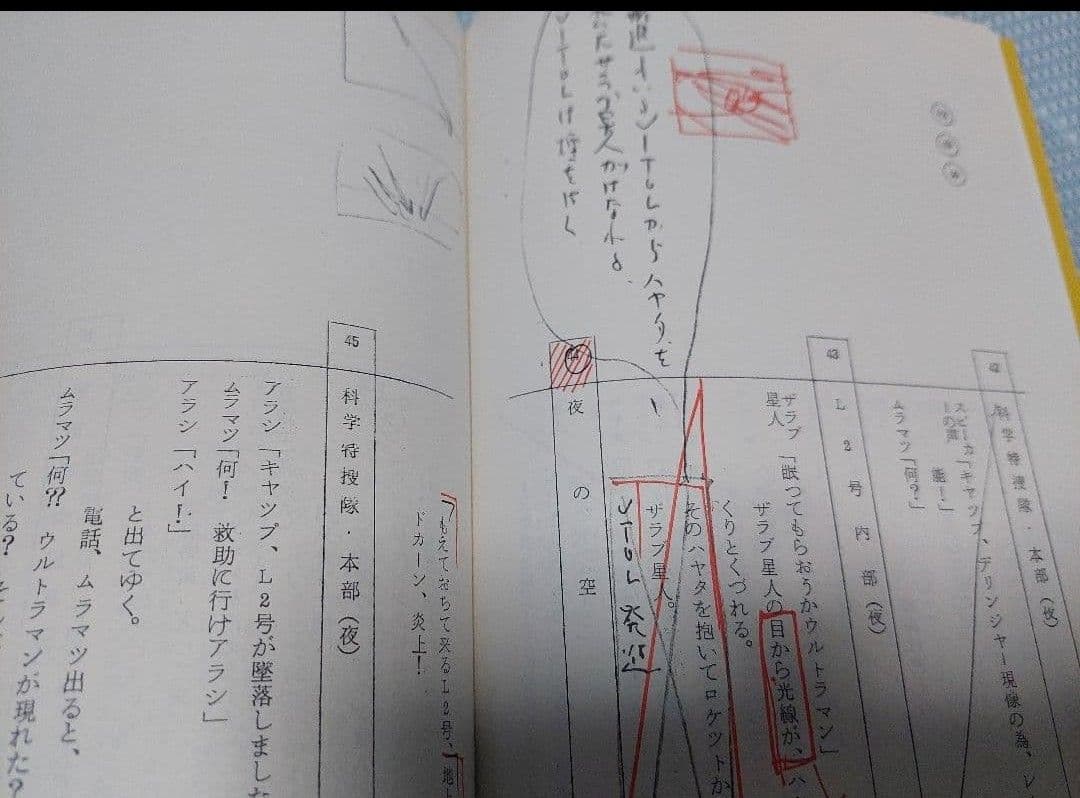 42
科学特捜隊・本部（夜）
スピーカーの声「キャップ、デリンジャー現像の為、レ
能！」
ムラマツ「何？」
43
L2号内部（夜）
ザラブ星人「眠ってもらおうかウルトラマン」
ザラブ星人の目から光線が、ハ
くりとくづれる。
そのハヤタを抱いてロケットか
ザラブ星人。
VTOL発進
44
夜の空
VTOLからハヤタを
VTOLは煙をはく
もえておちて来るL2号、地上
ドカーン、炎上！
45
科学特捜隊・本部（夜）
アラシ「キャップ、L2号が墜落しました
ムラマツ「何！　救助に行けアラシ」
アラシ「ハイ！」
と出てゆく。
電話、ムラマツ出ると、
ムラマツ「何⁇　ウルトラマンが現れた？
ている？